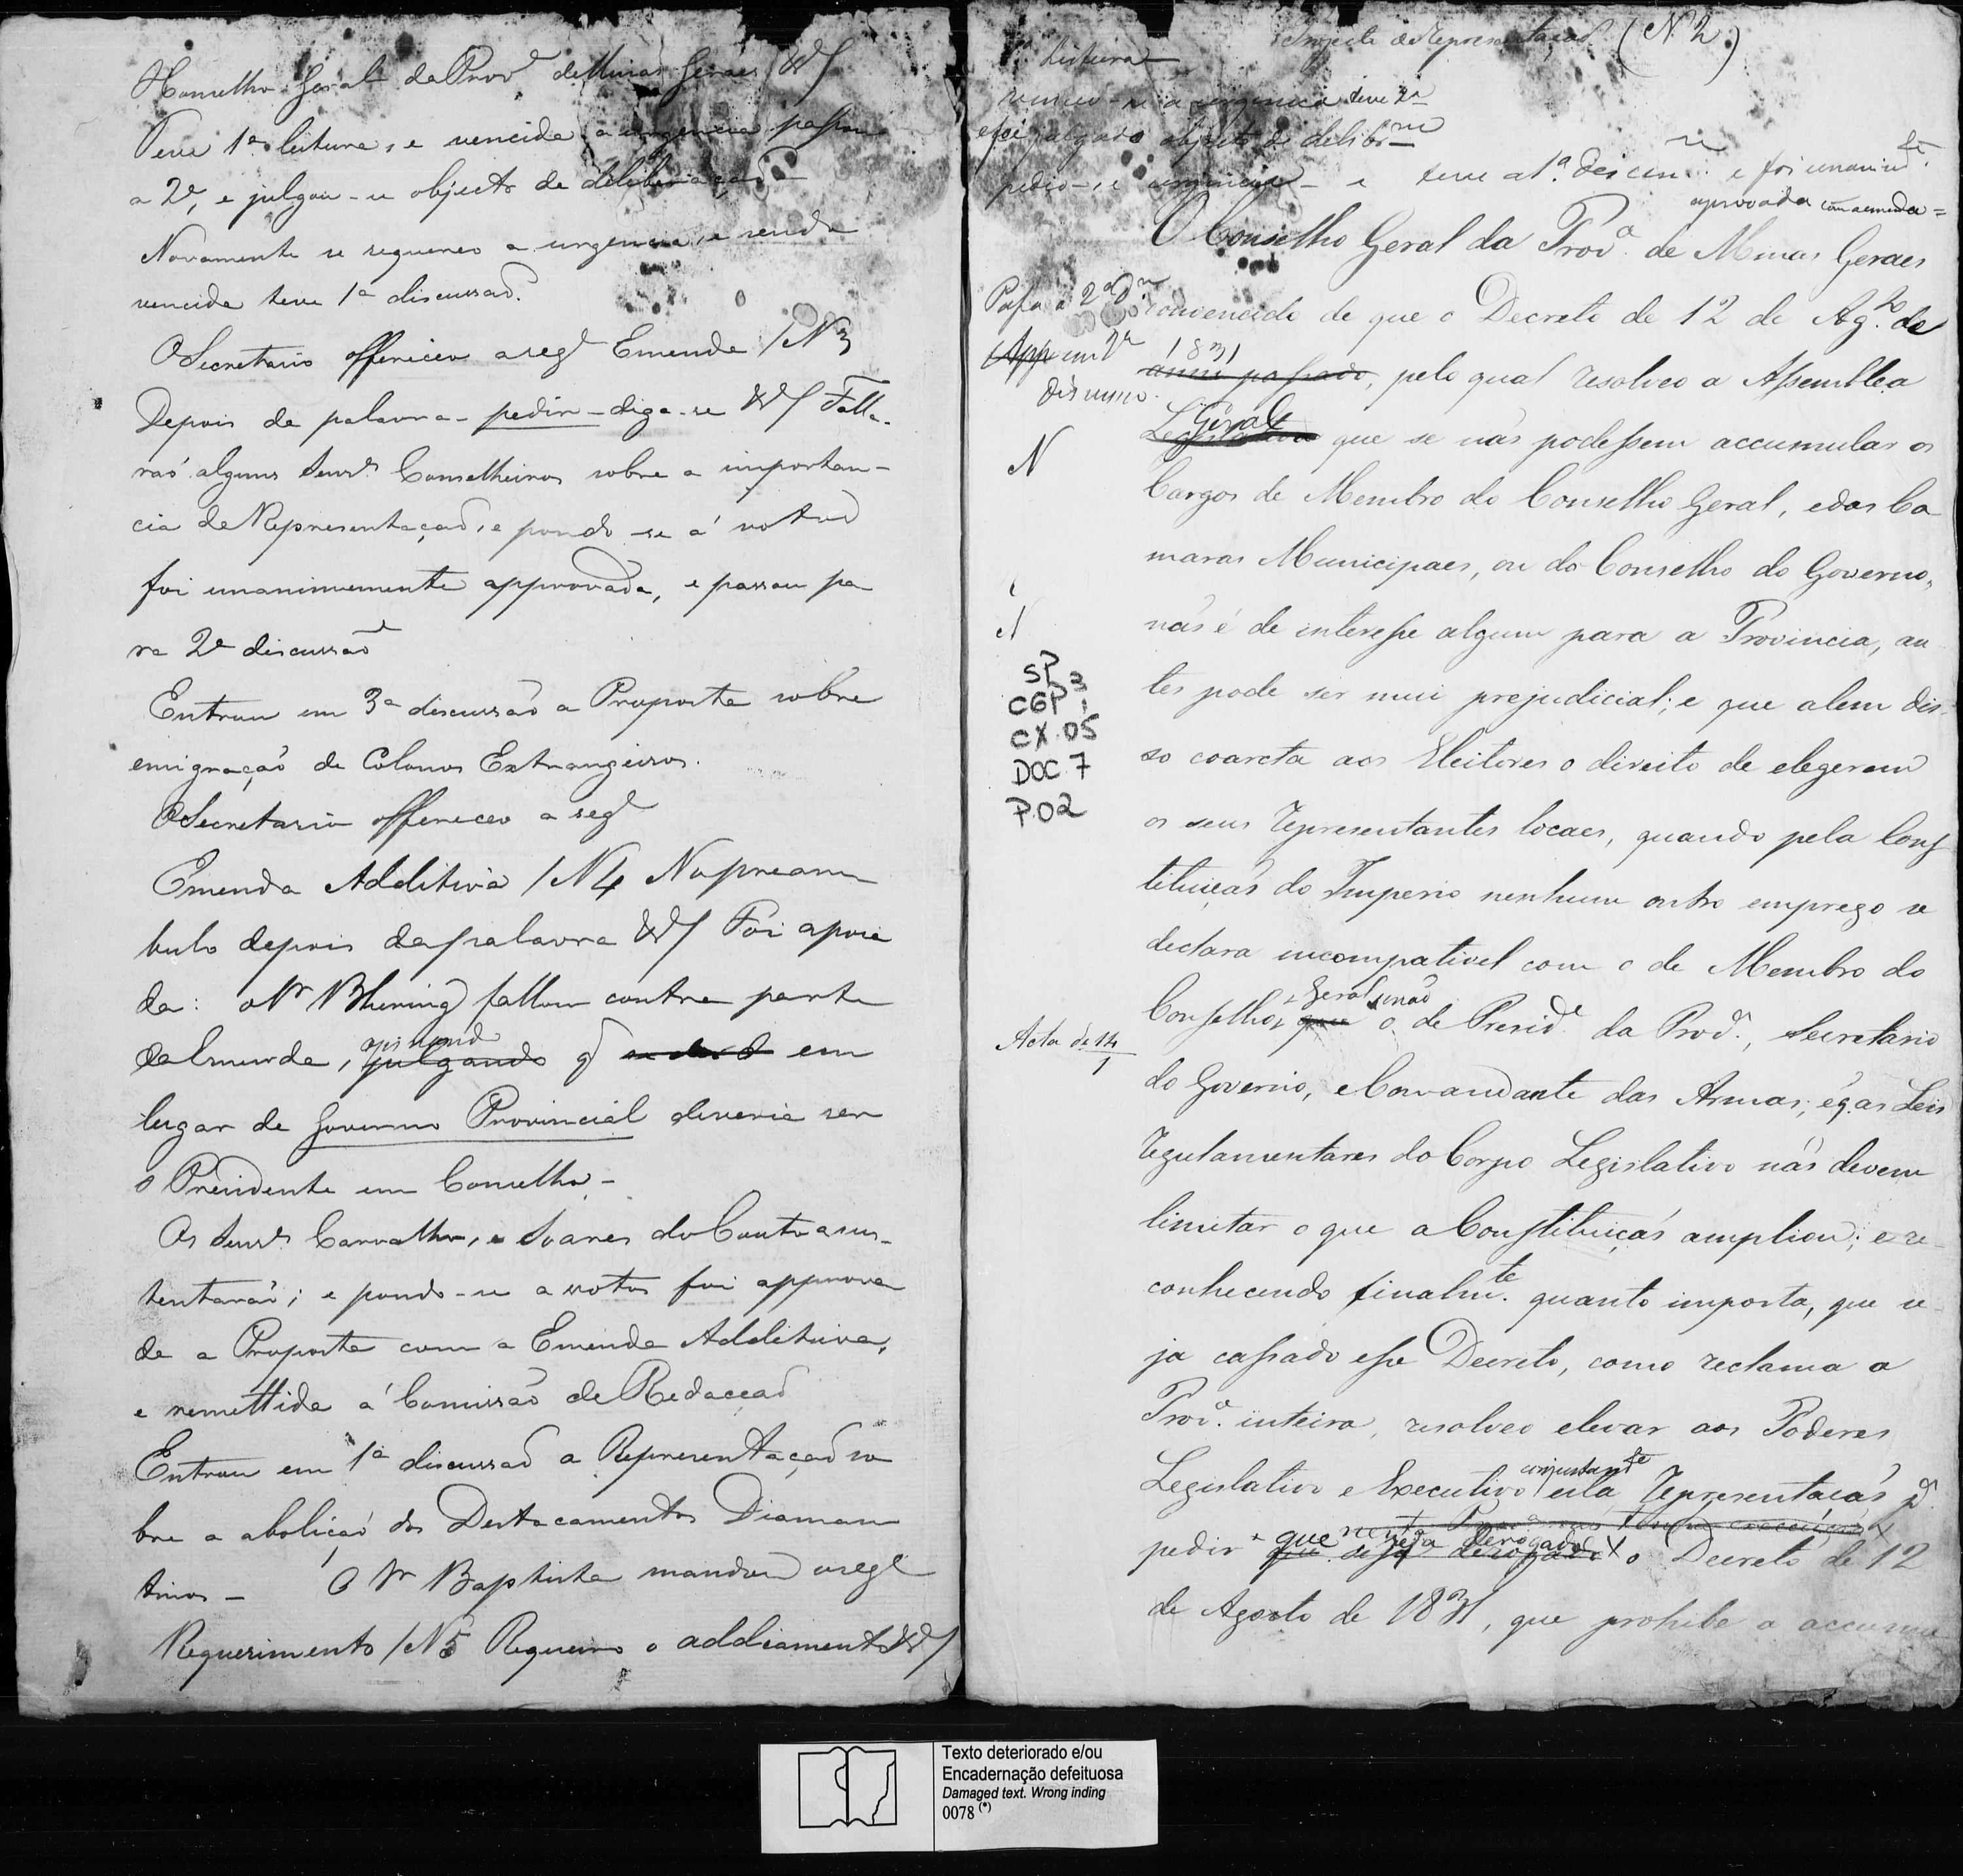 Conselho Geral da Prov.ª de Minas Geraes &/
Teve 1ª leitura, e vencida a urgencia passou
a 2ª, e julgou-se objecto de deliberação
Novamente se requereo a urgencia, e sendo
vencida teve 1ª discussaõ.
O Secretario offereceo a seg.e Emenda /N 3
Depois da palavra - pedir - diga-se &/ Falla-
raõ alguns Senr.s Conselheiros sobre a importan-
cia da Representaçaõ, e pondo-se á votos
foi unanimemente approvada, e passou pa
ra 2ª discussaõ
Entrou em 3ª discussaõ a Proposta sobre
emigraçaõ de Colonos Extrangeiros.
O Secretario offereceo a seg.e
Emenda Additiva /N 4 No pream
bulo depois da palavra &/ Foi apoia
da: o Sr Bhering fallou contra parte
da Emenda, julgando opinando q em
lugar de Governo Provincial deveria ser
o Presidente em Conselho -
Os Senr.s Carvalho, e Soares do Couto a sus-
tentaraõ; e pondo-se a votos foi approva
da a Proposta com a Emenda Additiva,
e remettida á Comissaõ de Redacçaõ
Entrou em 1ª discussaõ a Representaçaõ so
bre a aboliçaõ dos Destacamentos Diaman
tinos - O Sr Baptista mandou o seg.e
Requerimento /N 5 Requeiro o addiamento &/
Projecto de Representaçaõ (N. 2.)
1ª Leitura
venceo-se a urgencia teve 2ª
e foi julgado objecto de deliber.m
pedio-se urgencia - e teve a 1ª. Discm. e foi unanim.te
aprovada com a emenda =
O Conselho Geral da Prov.ª de Minas Geraes
Passa a 2ª D.m
convencido de que o Decreto de 12 de Ag.to de
App em 2ª
Discussão.
1831
anno passado, pelo qual resolveo a Assemblea
Geral
Legislativa que se naõ podessem accumular os
N
Cargos de Membro do Conselho Geral, e das Ca
maras Municipaes, ou do Conselho do Governo,
naõ é de interesse algum para a Provincia, an
N
tes pode ser mui prejudicial; e que alem dis-
SP
CGP 3
1
CX. 05
DOC. 7
P. 02
so coarcta aos Eleitores o direito de elegerem
os seus representantes locaes, quando pela Cons
tituiçaõ do Imperio nenhum outro emprego se
declara incompativel com o de Membro do
Geral senaõ
Conselho, que o de Presid.e da Prov.ª, Secretario
Acta de 14
1
do Governo, e Comandante das Armas; e q. as Leis
regulamentares do Corpo Legislativo naõ devem
limitar o que a Constituiçaõ ampliou; e re
conhecendo finalm.te quanto importa, que se
ja cassado esse Decreto, como reclama a
Prov.ª inteira, resolveo elevar aos Poderes
conjuntam.te
Legislativo e Executivo esta representaçaõ p.ª
nesta Prov.ª naõ tenha execuçaõ
que seja derogado
pedir que seja derogado o Decreto de 12
de Agosto de 1831, que prohibe a accumu
Texto deteriorado e/ou
Encadernação defeituosa
Damaged text. Wrong inding
0078 (*)